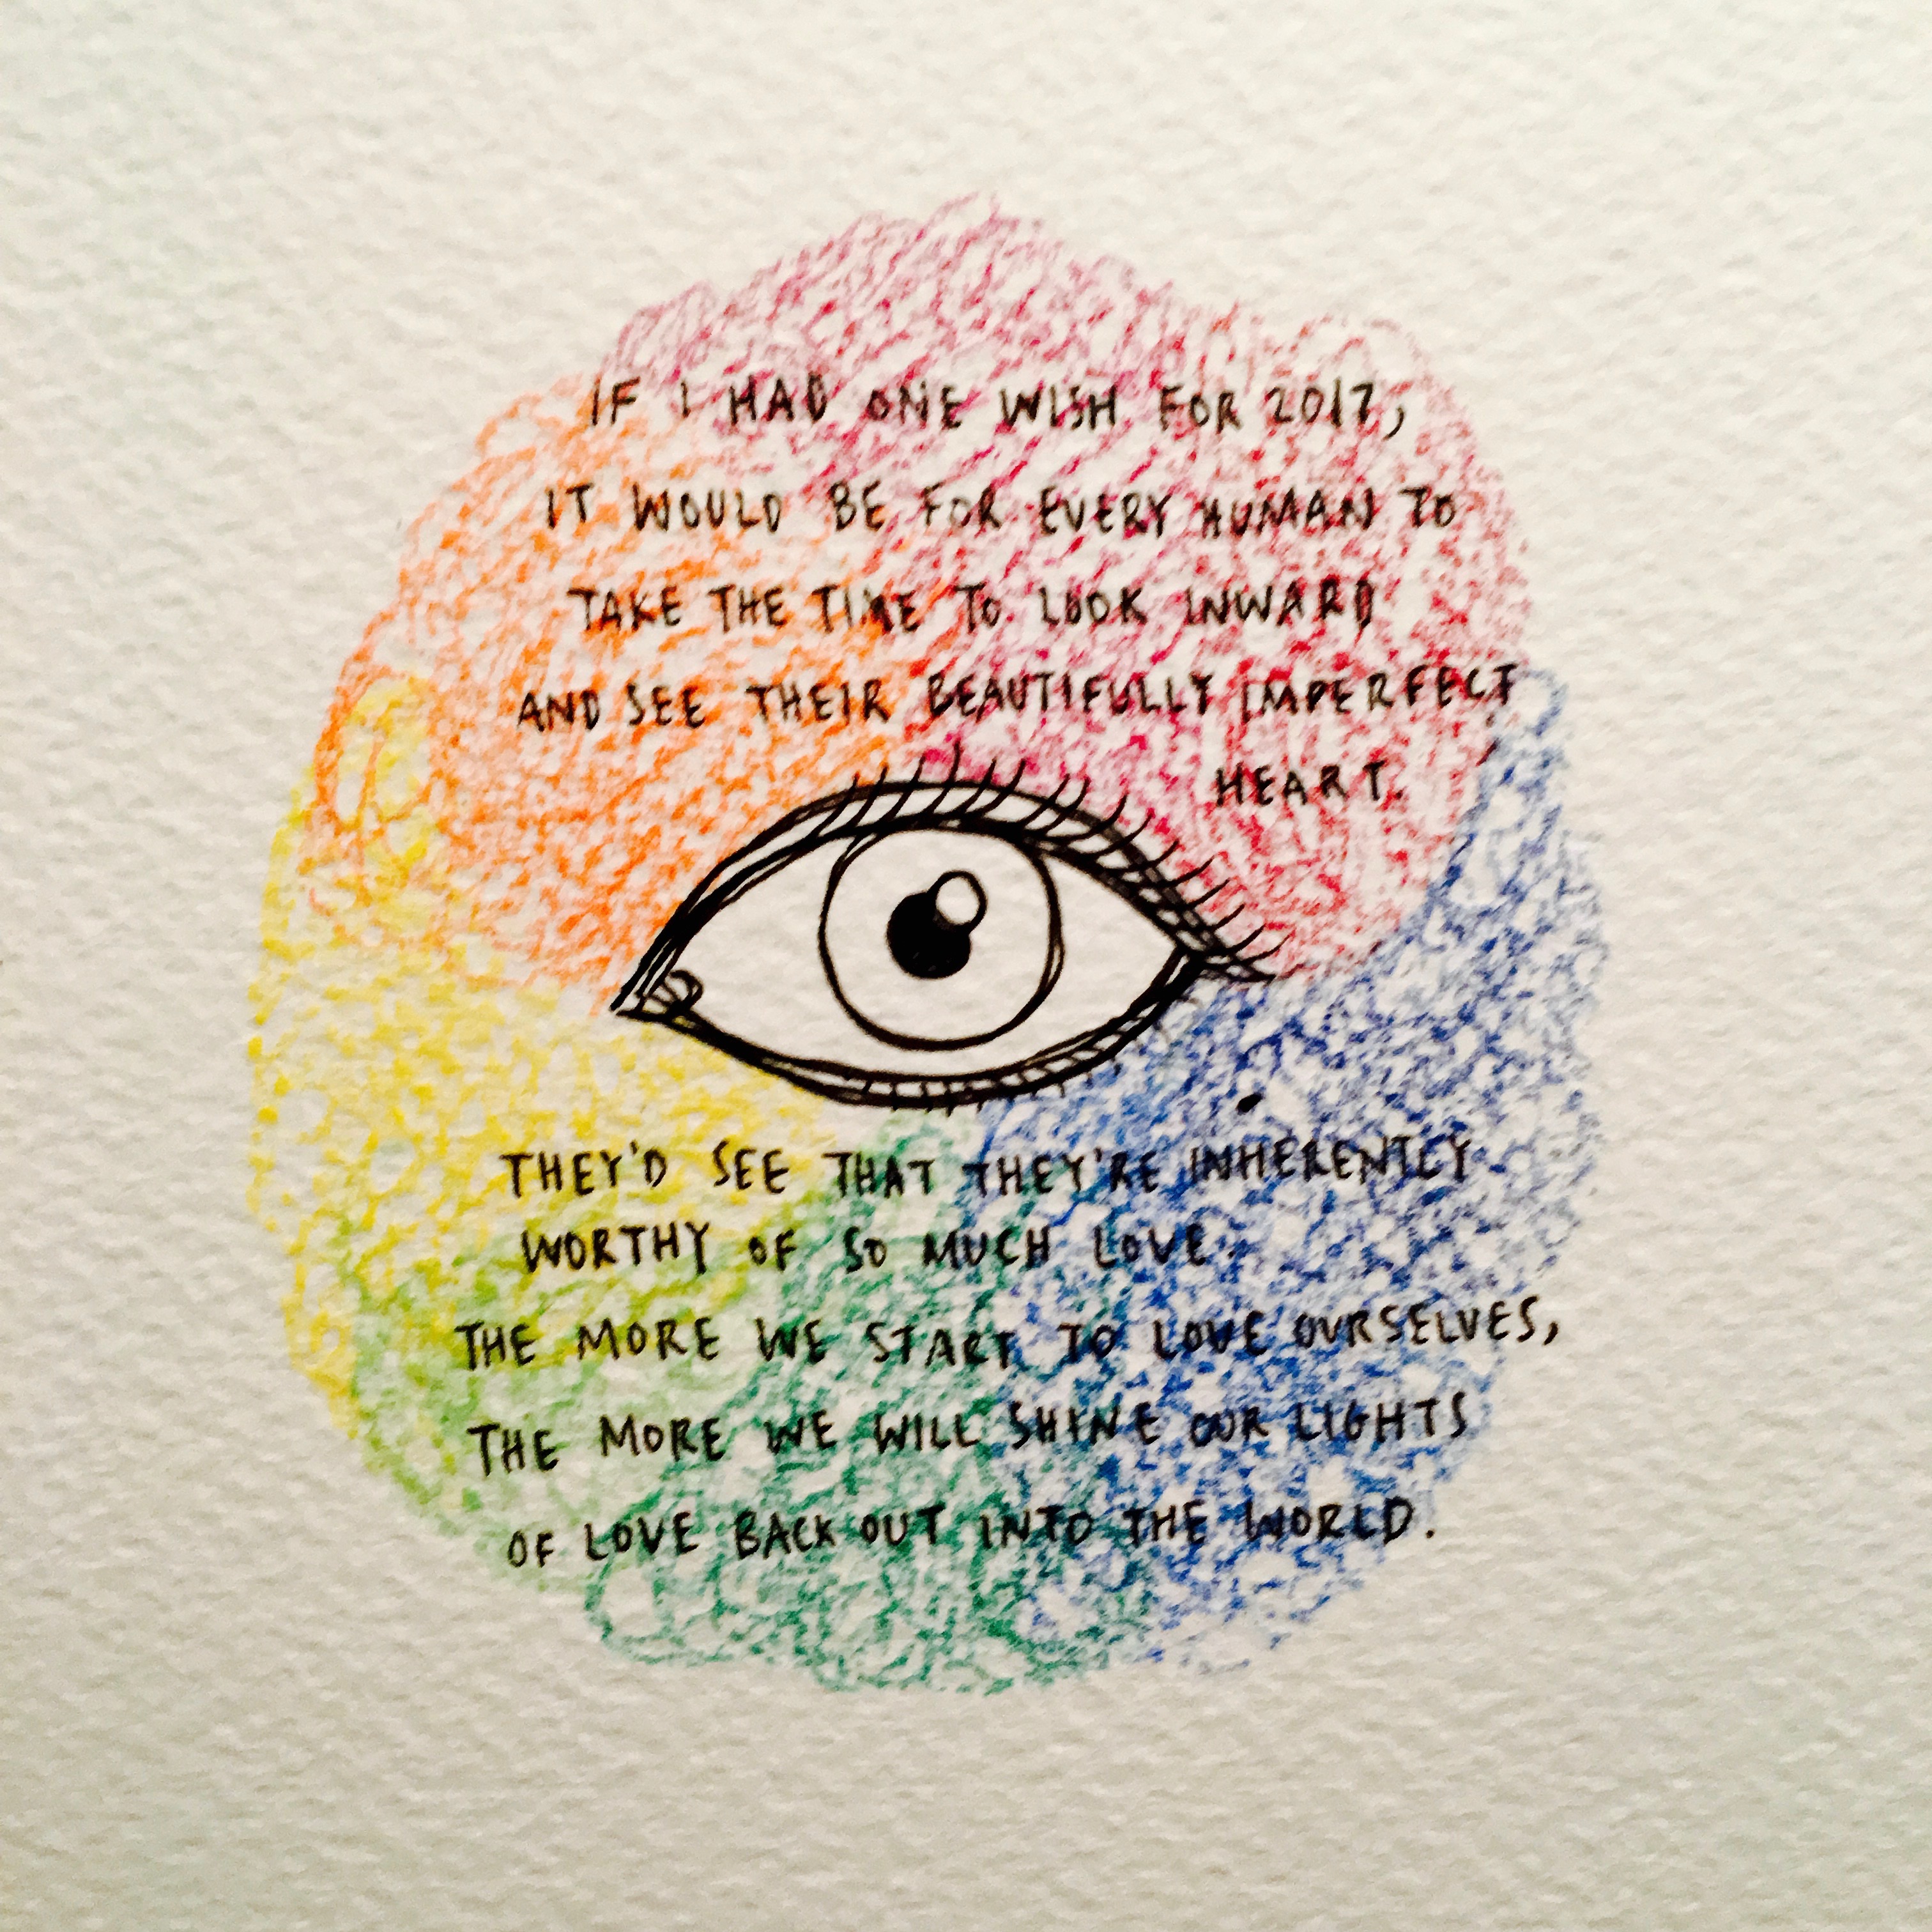 IF I HAD ONE WISH FOR 2017,
IT WOULD BE FOR EVERY HUMAN TO
TAKE THE TIME TO LOOK INWARD
AND SEE THEIR BEAUTIFULLY IMPERFECT
HEART.
THEY'D SEE THAT THEY'RE INHERENTLY
WORTHY OF SO MUCH LOVE.
THE MORE WE START TO LOVE OURSELVES,
THE MORE WE WILL SHINE OUR LIGHTS
OF LOVE BACK OUT INTO THE WORLD.